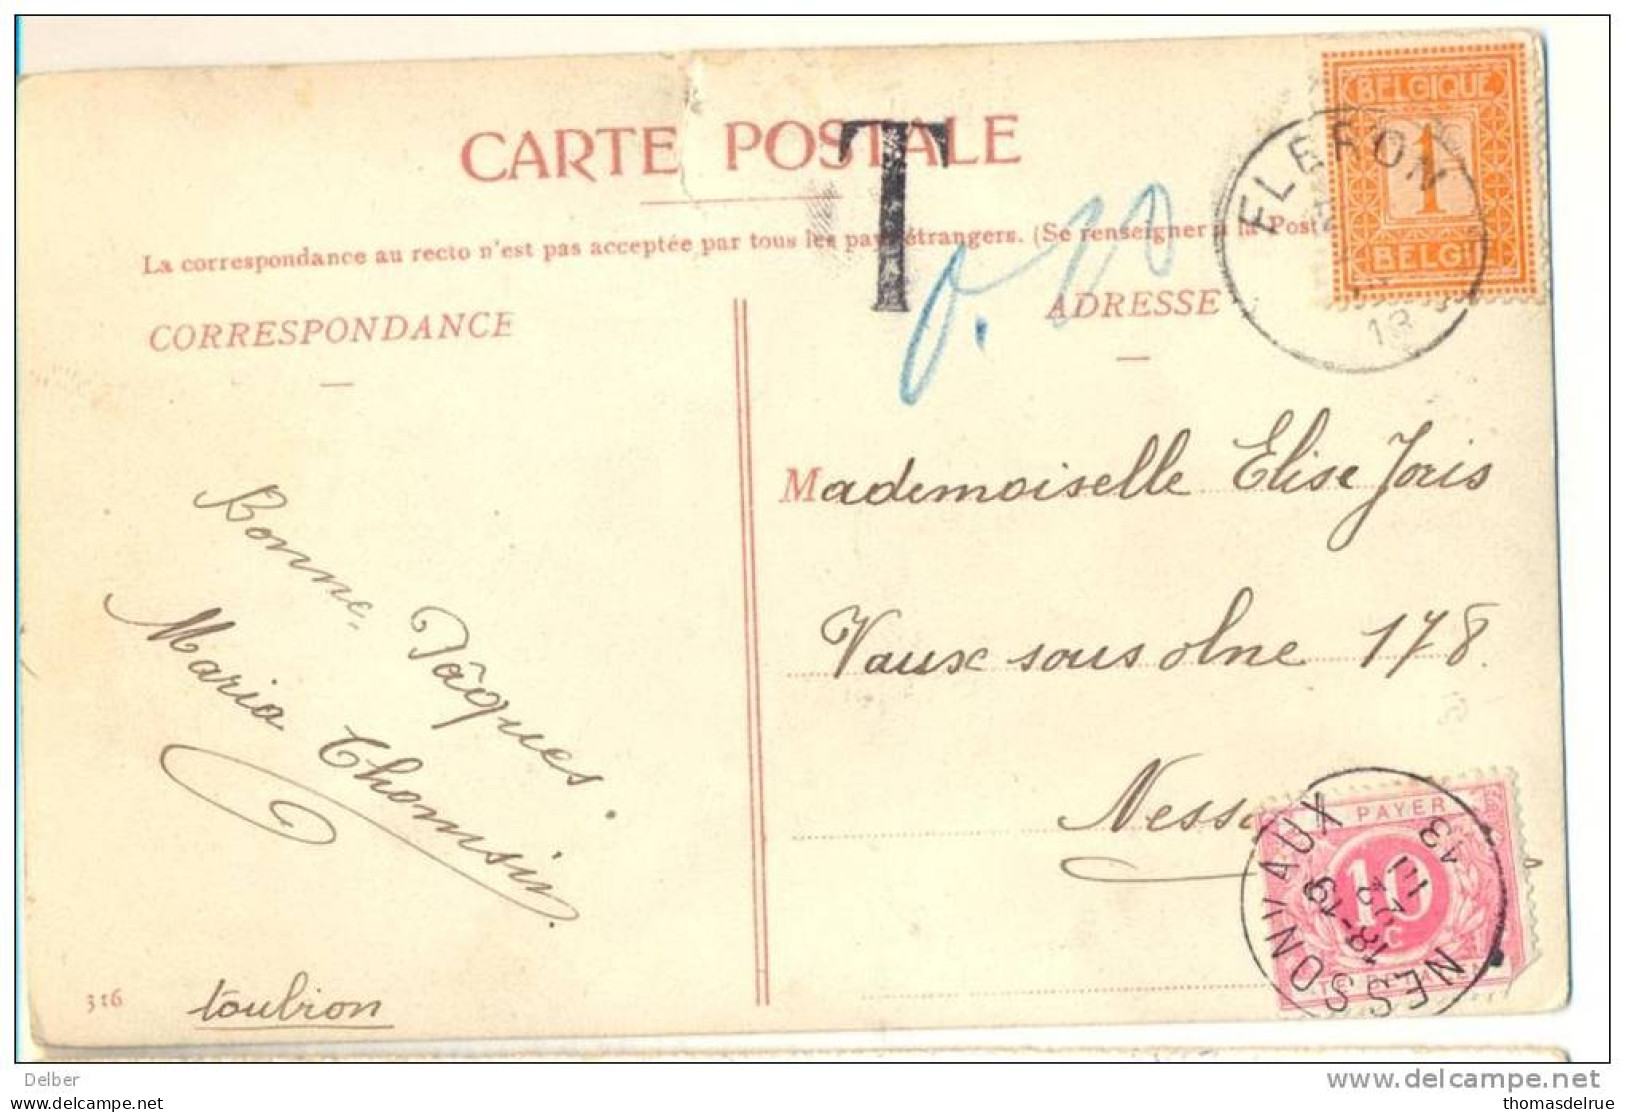 CARTE POSTALE
T
BELGIQUE
1
BELGI
FLERON
13
La correspondance au recto n'est pas acceptée par tous les pays étrangers. (Se renseigner à la Post
0.20
CORRESPONDANCE
ADRESSE
Mademoiselle Elise Joris
Vaux sous olne 178.
Ness
Bonne Pâques.
Maria Thomsin.
toubion
316
PAYER
10
C
NESSONVAUX
18-19
III
13
Delber
www.delcampe.net
thomasdelrue